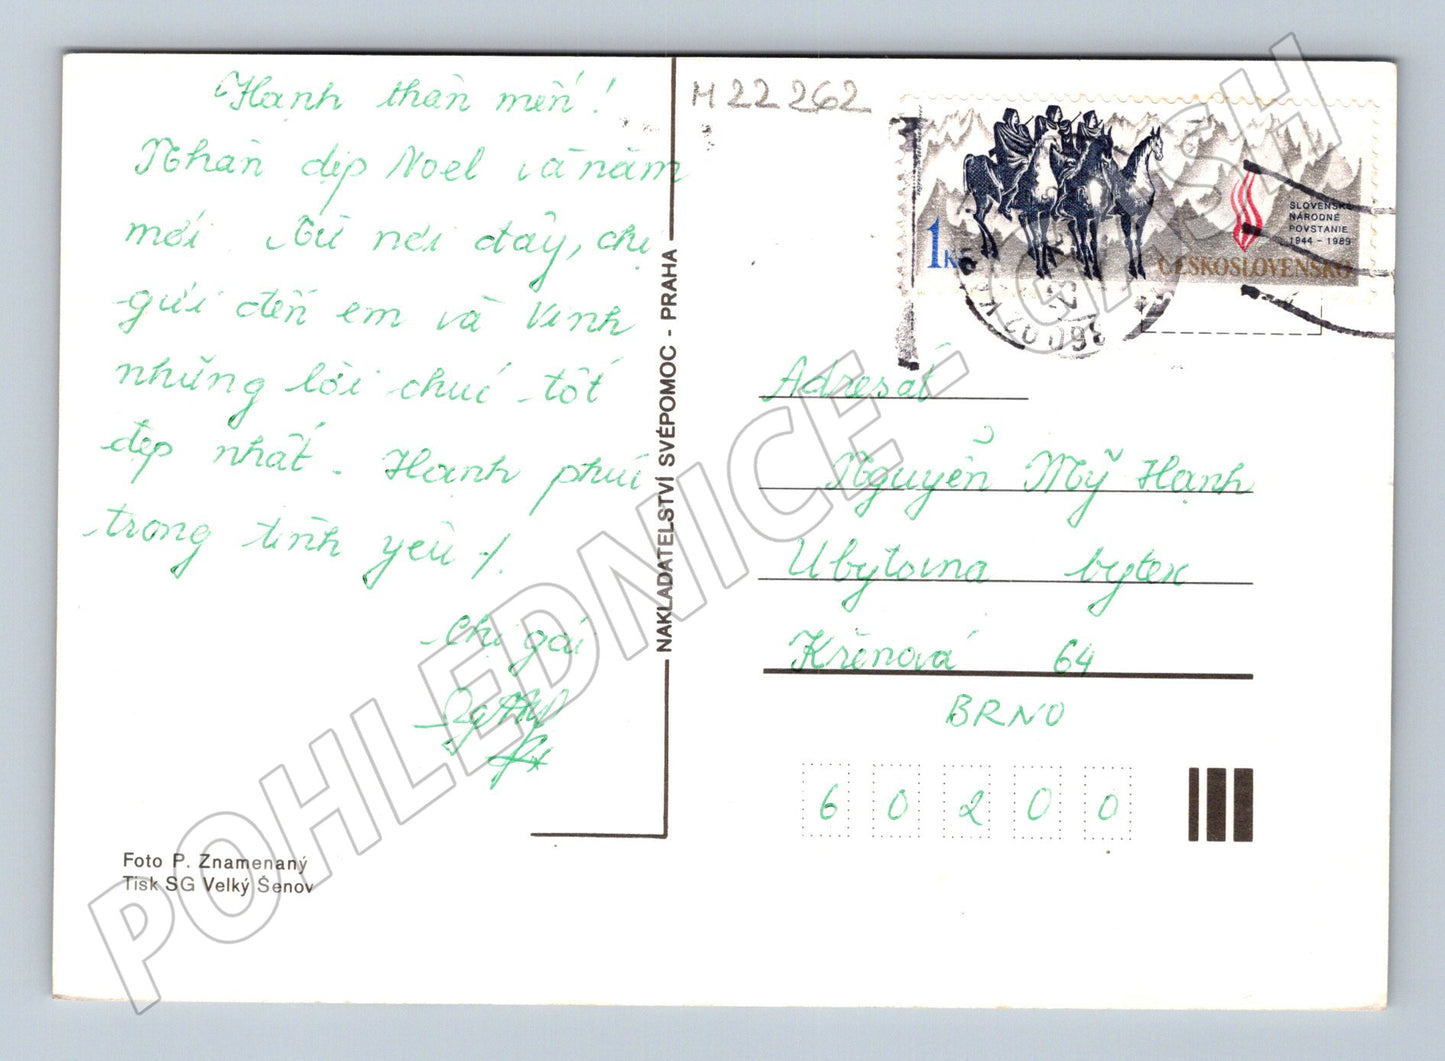 Hạnh thân mến!
Nhân dịp Noel và năm
mới. Từ nơi đây, chị
gửi đến em và Vinh
những lời chúc tốt
đẹp nhất. Hạnh phúc
trong tình yêu!
Chị gái
M 22 262
1 Kčs
SLOVENSKÉ
NÁRODNÉ
POVSTANIE
1944 - 1989
ČESKOSLOVENSKO
NAKLADATELSTVÍ SVÉPOMOC - PRAHA
Adresát
Nguyễn Mỹ Hạnh
Ubytovna bytex
Křenová 64
BRNO
60200
Foto P. Znamenaný
Tisk SG Velký Šenov
POHLEDNICE - CASH